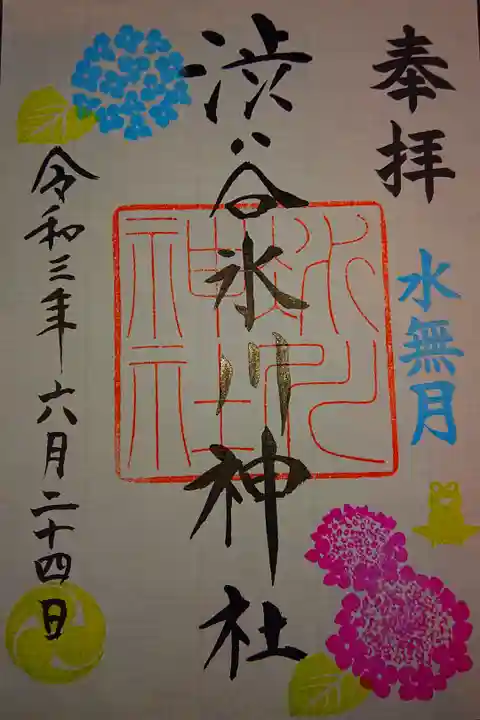 奉拝
水無月
渋谷氷川神社
令和三年六月二十四日